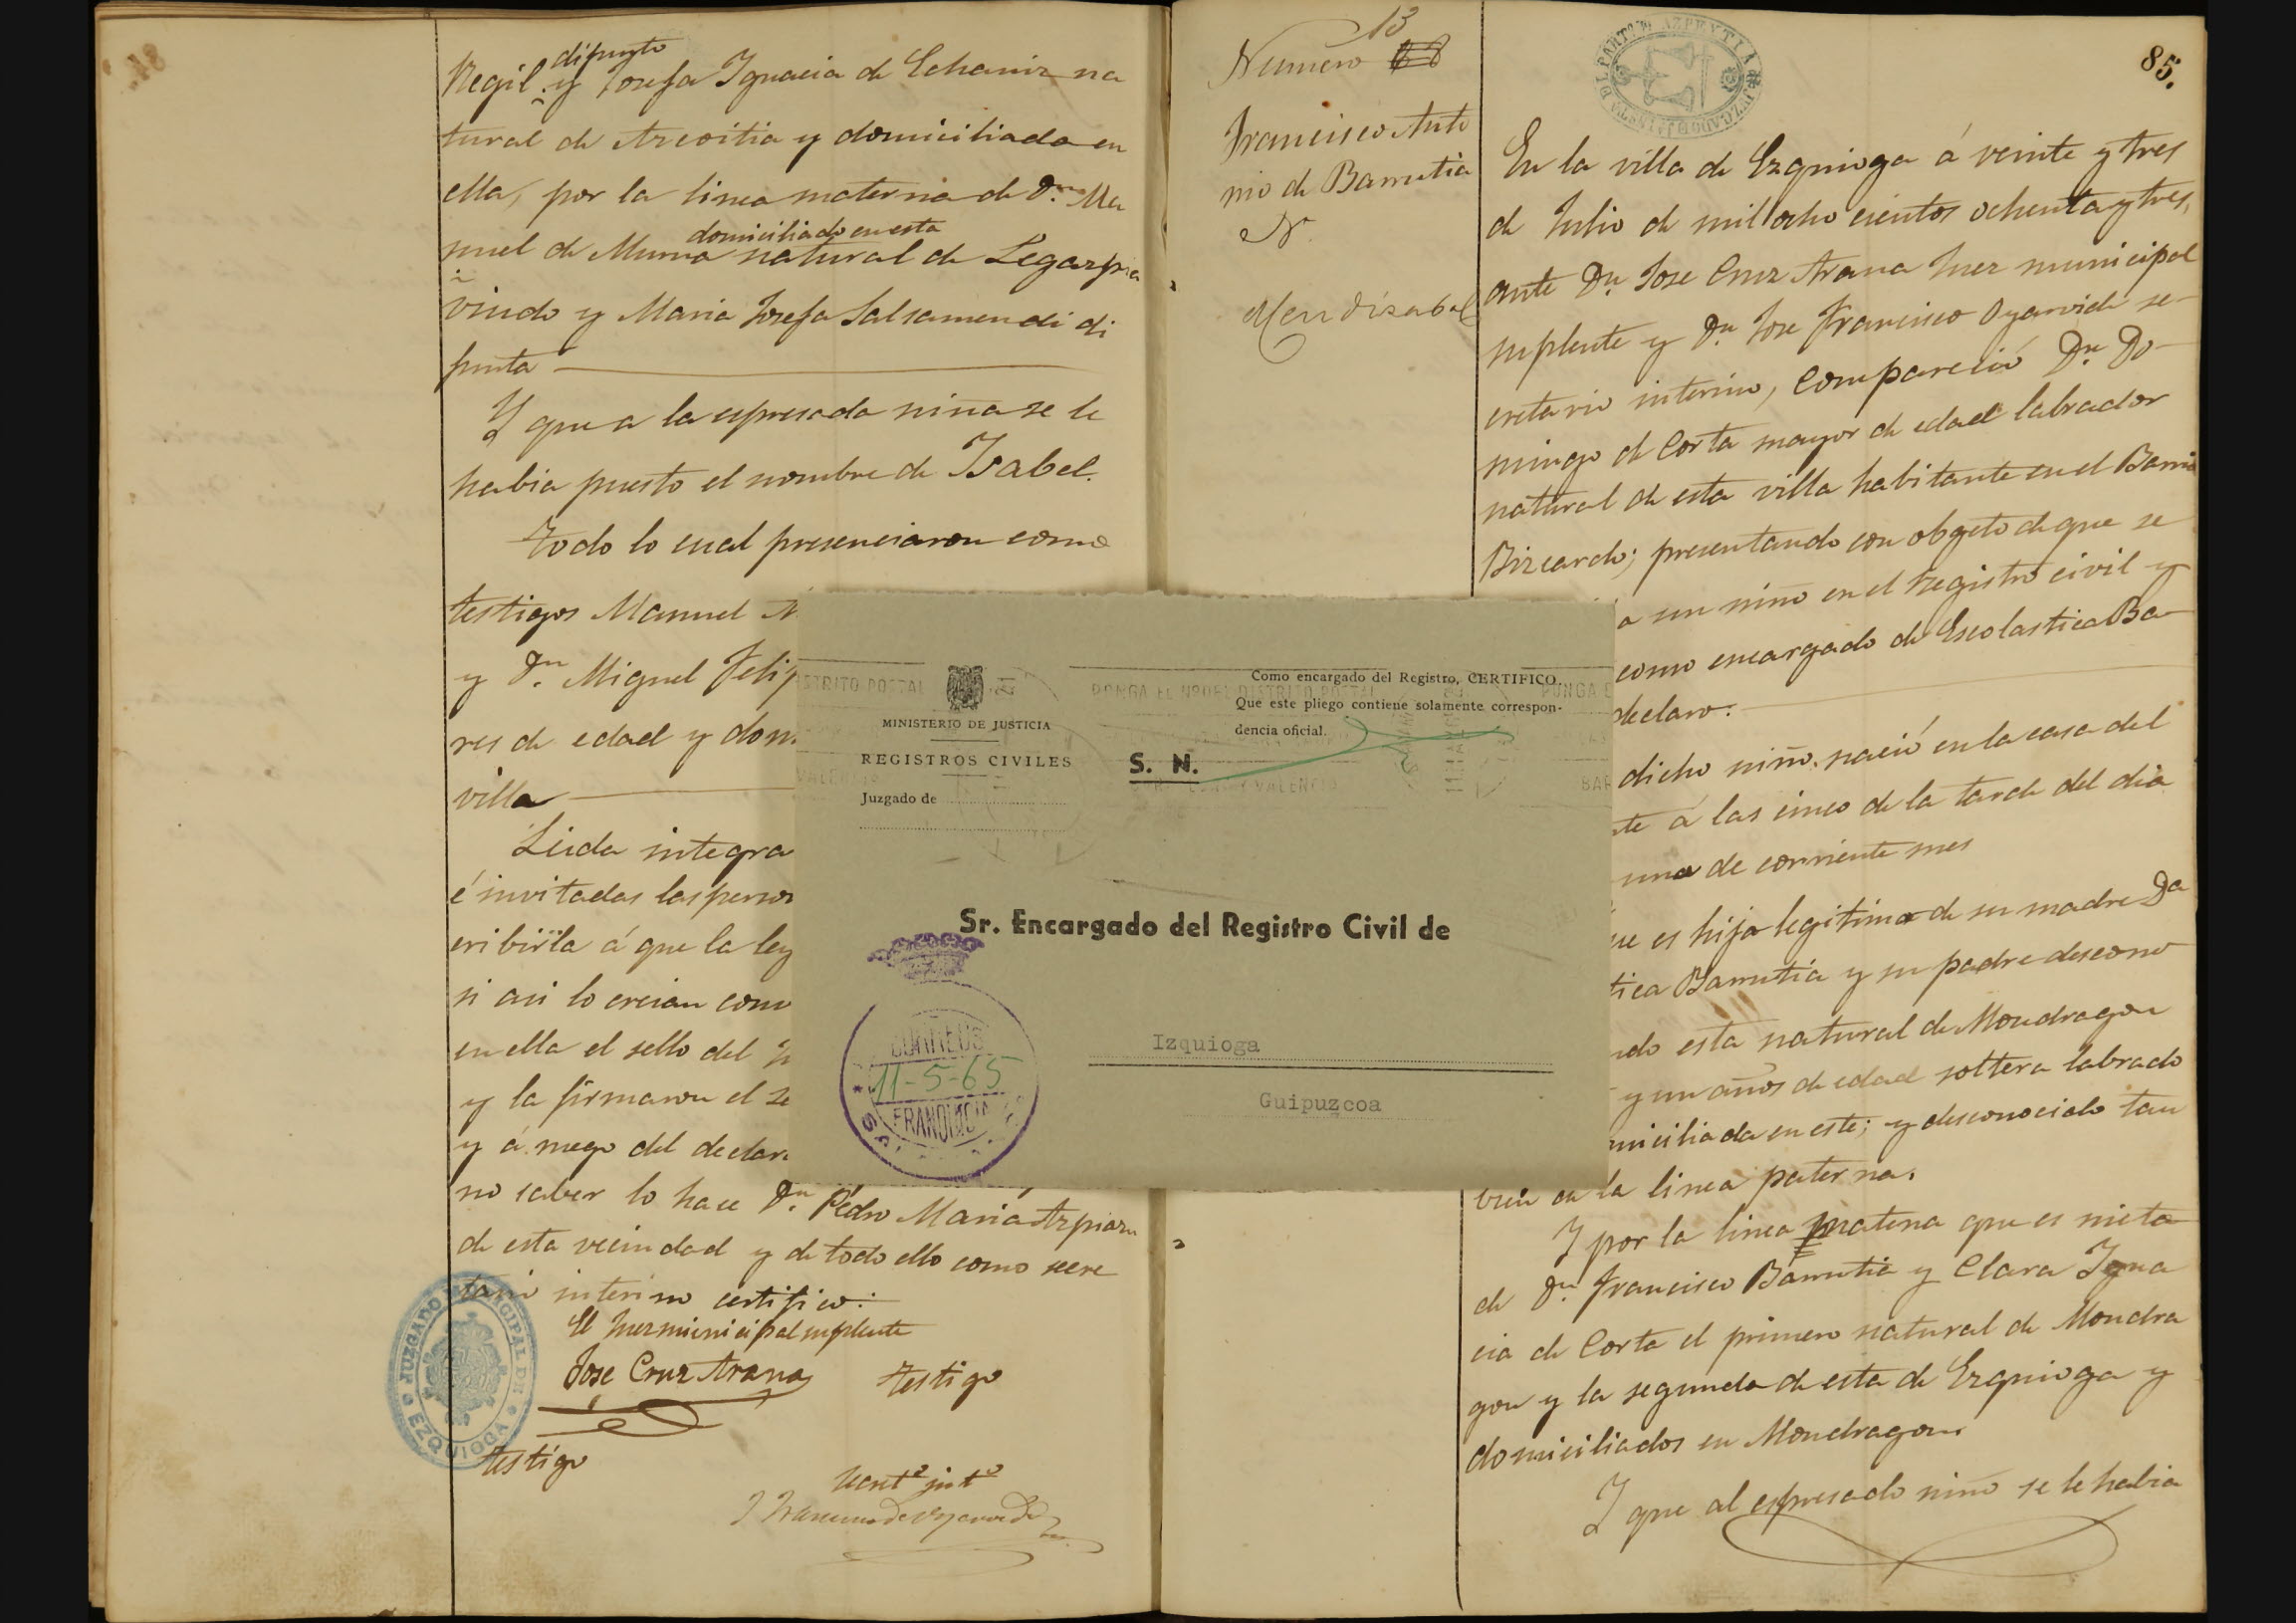 Regil y difunto Josefa Ignacia de Echaniz na
tural de Azcoitia y domiciliada en
ella, por la linea materna de Dn. Ma
nuel de Murua domiciliado en esta natural de Legazpia
viudo y Maria Josefa Salsamendi di
funta
Y que a la espresada niña se le
habia puesto el nombre de Isabel.
Todo lo cual presenciaron como
testigos Manuel
y Dn. Miguel Felip
res de edad y dom
villa
Leida integra
é invitadas las person
cribirla á que la ley
si asi lo creian conv
en ella el sello del
y la firmaron el
y á ruego del declar
no saber lo hace Dn. Pedro Maria Azpiazu
de esta vecindad y de todo ello como secre
tario interino certifico:
El Juez municipal suplente
Jose Cruz Arana
testigo
testigo
Secretº intº
JUZGADO MUNICIPAL DE EZQUIOGA
13
Numero
Francisco Anto
nio de Barrutia
N.
Mendizabal
85.
En la villa de Ezquioga á veinte y tres
de Julio de mil ocho cientos ochenta y tres,
ante Dn. Jose Cruz Arana Juez municipal
suplente y Dn. Jose Francisco Oyarvide se-
cretario interino, compareció Dn. Do-
mingo de Corta mayor de edad labrador
natural de esta villa habitante en el Barrio
Bizcardo; presentando con objeto de que se
a un niño en el registro civil y
como encargado de Escolastica Ba-
declaro:
dicho niño nació en la casa del
te á las cinco de la tarde del dia
uno de corriente mes
ue es hijo legitimo de su madre Da
tica Barrutia y su padre descono
ndo esta natural de Mondragon
y un años de edad soltera labrado
miciliada en este; y desconocido tam
bien en la linea paterna.
Y por la linea matena que es nieto
de Dn. Francisco Barrutia y Clara Igna
cia de Corta el primero natural de Mondra
gon y la segunda de esta de Ezquioga y
domiciliados en Mondragon.
Y que al espresado niño se le habia
MINISTERIO DE JUSTICIA
REGISTROS CIVILES
Juzgado de
S. N.
Como encargado del Registro, CERTIFICO.
Que este pliego contiene solamente correspon-
dencia oficial.
PONGA EL Nº DEL DISTRITO POSTAL
Sr. Encargado del Registro Civil de
Izquioga
Guipuzcoa
CORREOS
11-5-65
FRANQUICIA